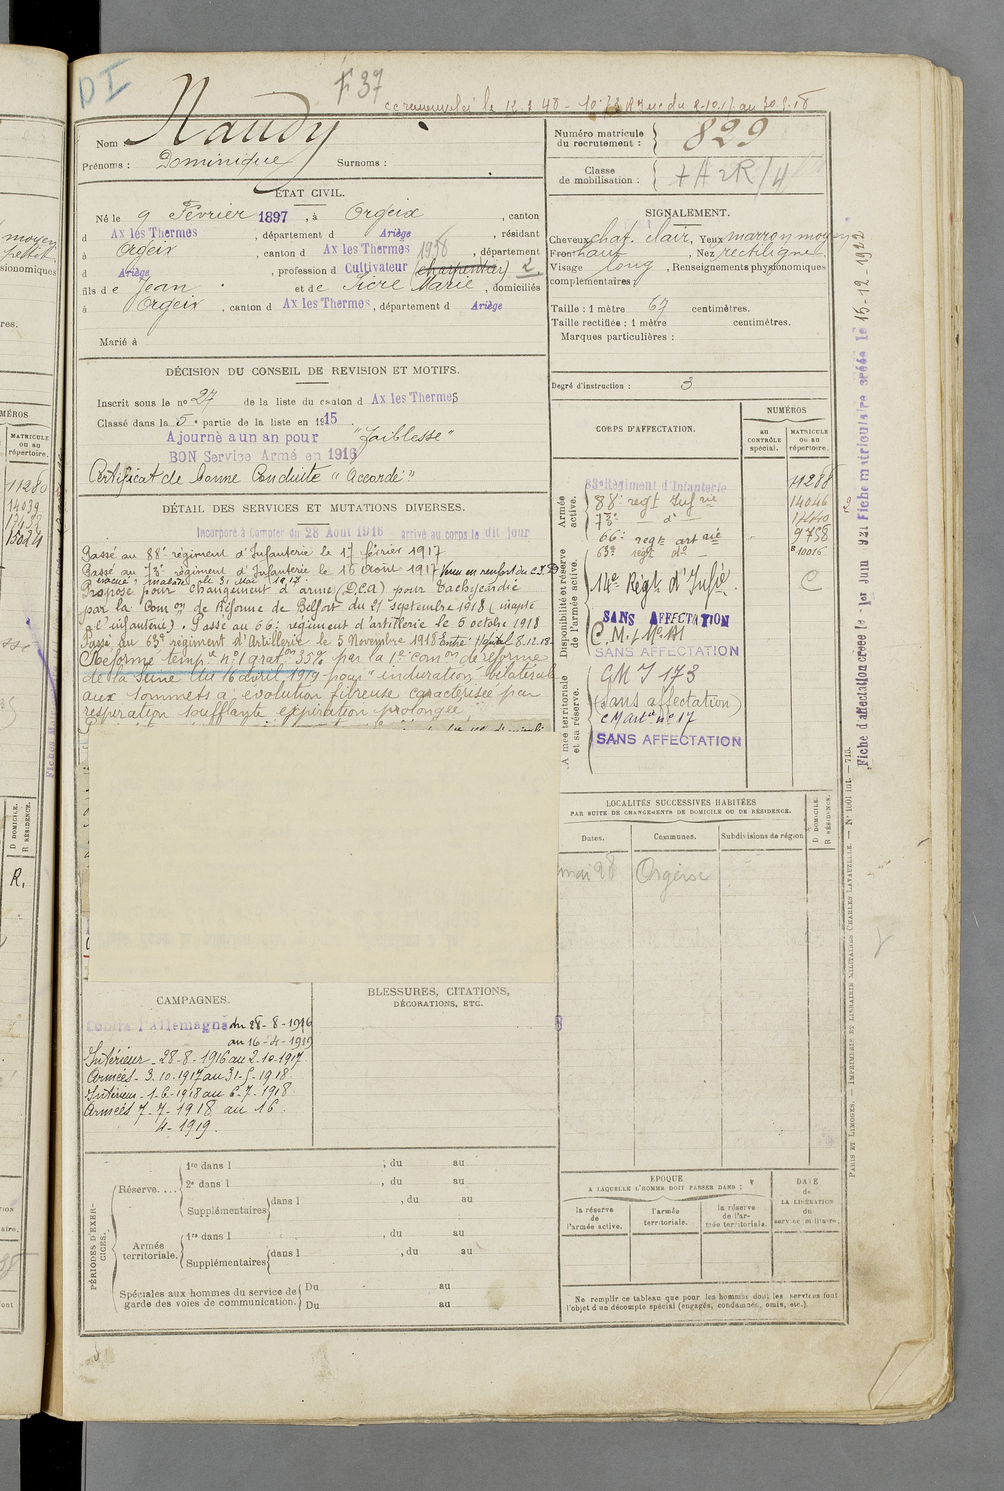 D I
F 37
Nom : Naudy
Prénoms : Dominique Surnoms :
Numéro matricule du recrutement : 829
Classe de mobilisation :
ÉTAT CIVIL.
Né le 9 Février 1897, à Orgeix, canton
d Ax les Thermes, département d Ariège, résidant
à Orgeix, canton d Ax les Thermes, département
d Ariège, profession d Cultivateur (charpentier)
fils de Jean et de Sicre Marie, domiciliés
à Orgeix, canton d Ax les Thermes, département d Ariège
Marié à
SIGNALEMENT.
Cheveux chat. clair, Yeux marron moyen
Front haut, Nez rectiligne.
Visage long, Renseignements physionomiques
complémentaires :
Taille : 1 mètre 67 centimètres.
Taille rectifiée : 1 mètre centimètres.
Marques particulières :
Degré d'instruction : 3
DÉCISION DU CONSEIL DE REVISION ET MOTIFS.
Inscrit sous le no 27 de la liste du canton d Ax les Thermes
Classé dans la 5e partie de la liste en 1915
Ajourné a un an pour "Faiblesse"
BON Service Armé en 1916
Certificat de bonne Conduite "Accordé"
DÉTAIL DES SERVICES ET MUTATIONS DIVERSES.
Incorporé à Compter du 28 Août 1916 arrivé au corps le dit jour
Passé au 88e régiment d'Infanterie le 17 février 1917
Passé au 73e régiment d'Infanterie le 10 août 1917
Proposé pour changement d'arme (D.C.A) pour Tachycardie
par la Comon de Réforme de Belfort du 21 septembre 1918 (inapte
à l'infanterie). Passé au 66e régiment d'artillerie le 5 octobre 1918
Passé au 63e régiment d'Artillerie le 5 Novembre 1918 Entré Hôpital 8.12.18.
Réformé tempre no 1 graton 35% par la 1e comon de réforme
de la Seine du 16 avril 1919 pour "induration bilatérale
aux sommets à évolution fibreuse caractérisée par
respiration soufflante expiration prolongée"
CORPS D'AFFECTATION.
NUMÉROS
au CONTRÔLE spécial.
MATRICULE ou au répertoire.
Armée active.
83e Régiment d'Infanterie 11288
88e regt Infrie 14046
73e do
66e regt artrie 9758
63e regt do 10015
Disponibilité et réserve de l'armée active.
14e Régt d'Infie C
SANS AFFECTATION
SANS AFFECTATION
Armée territoriale et sa réserve.
(sans affectation)
SANS AFFECTATION
Fiche d'affectation créée le 1er Juin 921 Fiche matriculaire créée le 15-12-1922
LOCALITÉS SUCCESSIVES HABITÉES
PAR SUITE DE CHANGEMENTS DE DOMICILE OU DE RÉSIDENCE.
Dates. Communes. Subdivisions de région D DOMICILE. R RÉSIDENCE.
mai 28 Orgeix
CAMPAGNES.
Contre l'Allemagne du 28-8-1916
au 16-4-1919
Intérieur - 28-8-1916 au 2.10.1917
Armées - 3.10.1917 au 31-5-1918
Intérieur - 1-6-1918 au 6-7-1918
Armées 7-7-1918 au 16
4-1919.
BLESSURES, CITATIONS,
DÉCORATIONS, ETC.
PÉRIODES D'EXERCICES.
Réserve.... 1re dans l , du au
2e dans l , du au
Supplémentaires dans l , du au
Armée territoriale. 1re dans l , du au
Supplémentaires dans l , du au
Spéciales aux hommes du service de garde des voies de communication. Du au
Du au
EPOQUE
A LAQUELLE L'HOMME DOIT PASSER DANS :
la réserve de l'armée active.
l'armée territoriale.
la réserve de l'armée territoriale.
DATE de LA LIBÉRATION du service militaire.
Ne remplir ce tableau que pour les hommes dont les services font
l'objet d'un décompte spécial (engagés, condamnés, omis, etc.).
PARIS ET LIMOGES. — IMPRIMERIE ET LIBRAIRIE MILITAIRES CHARLES LAVAUZELLE. — No 1001 int. — 715.